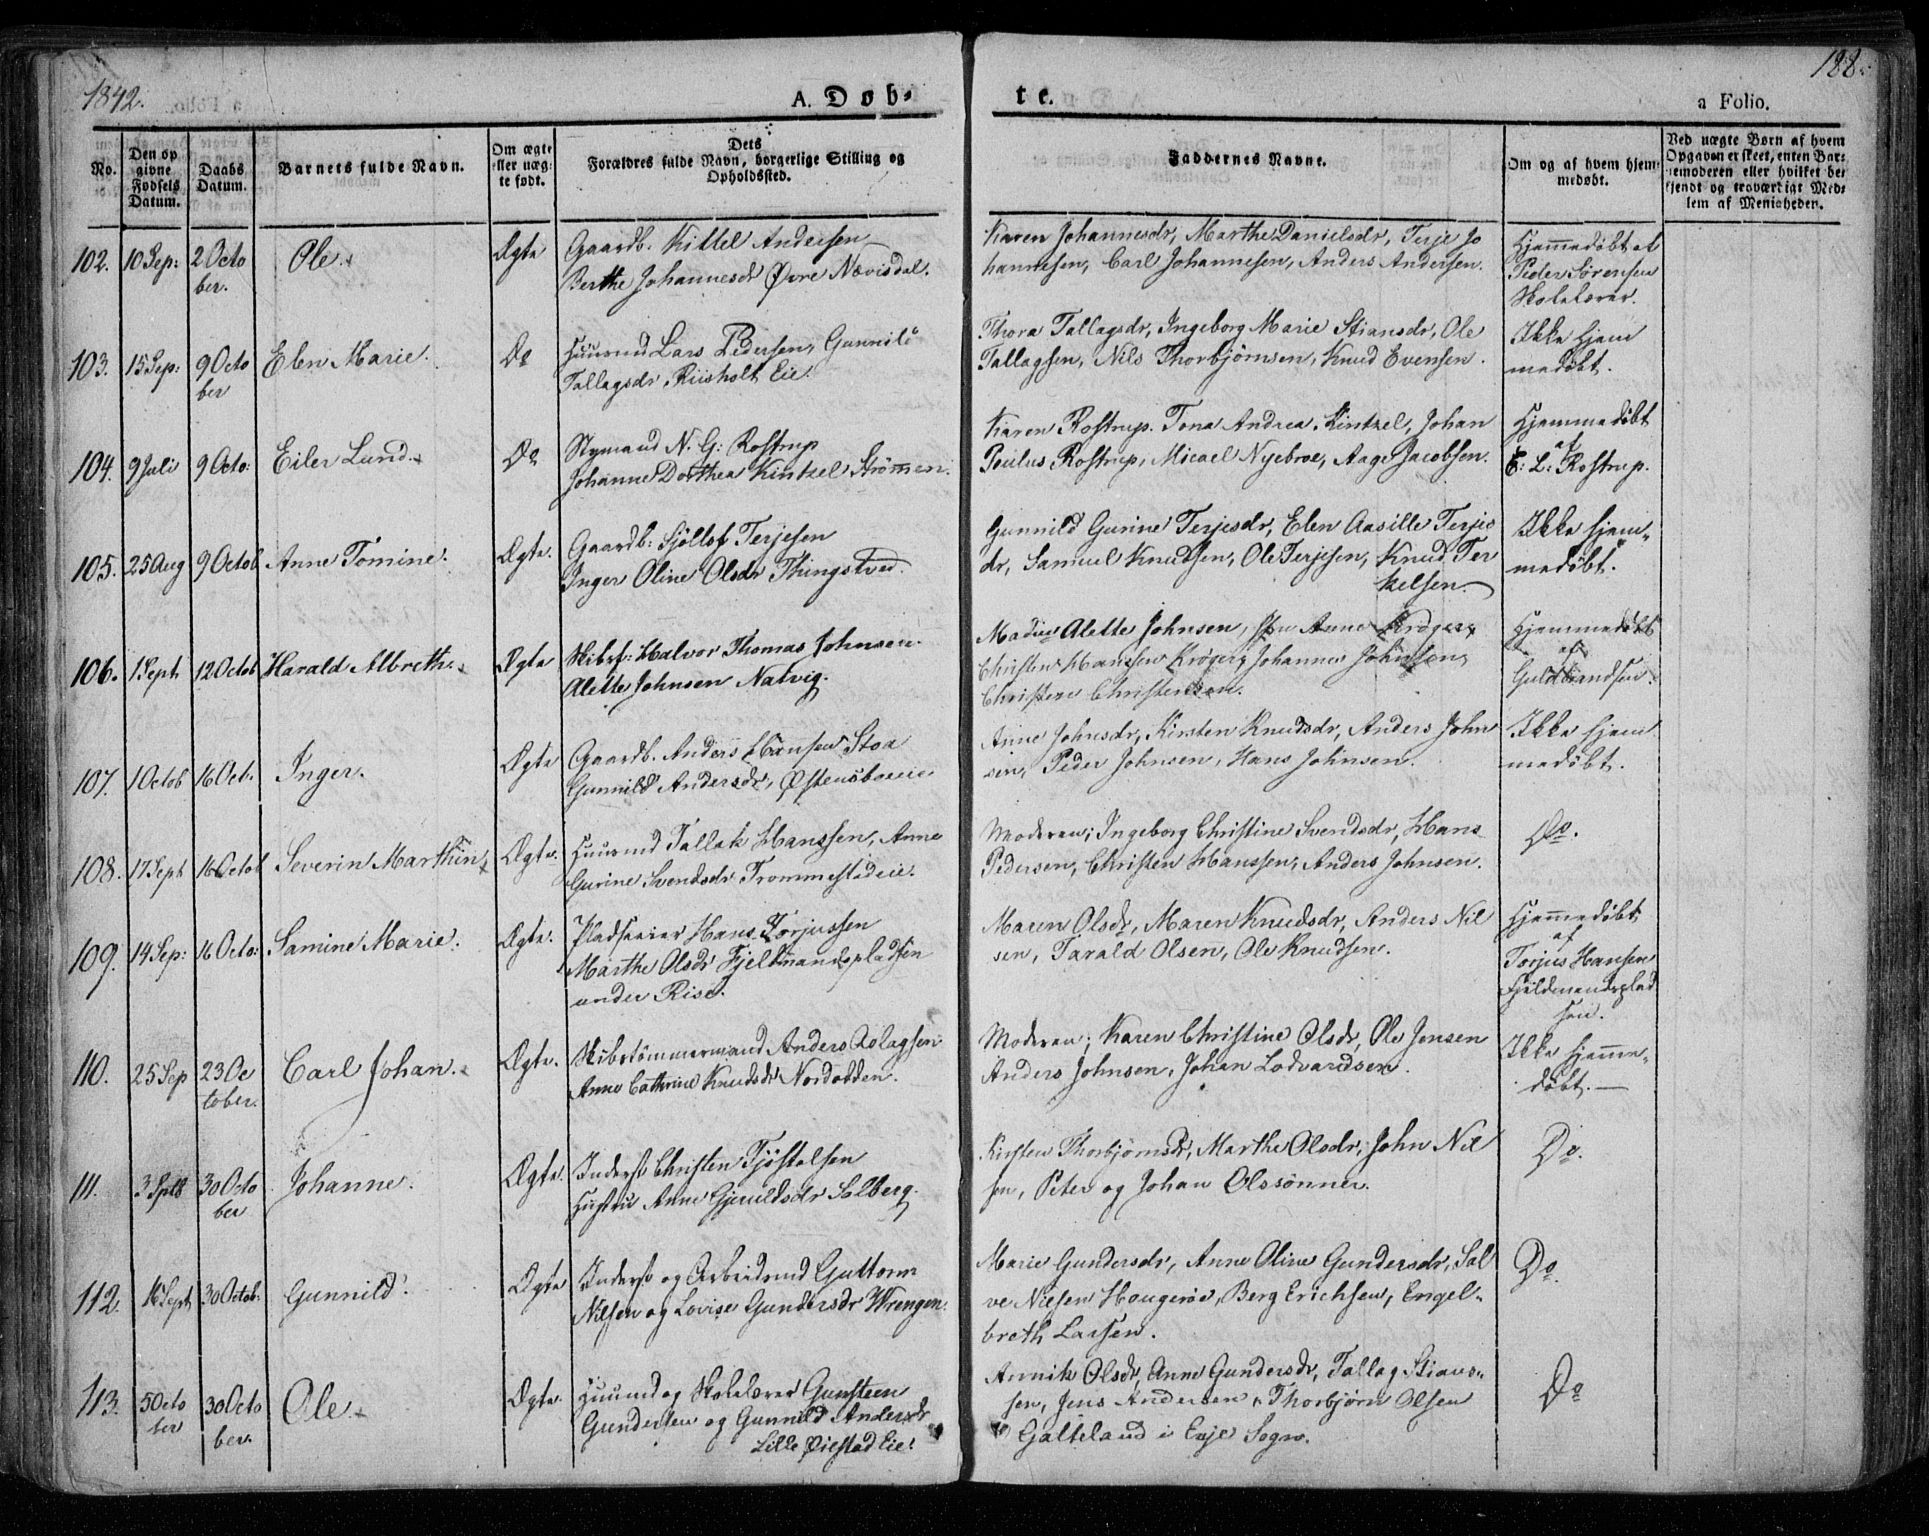 1842.
188.
A. Døb-
te.
a Folio.
No.
Den op
givne
Fødsels
Datum.
Daabs
Datum.
Barnets fulde Navn.
Om ægte
eller uæg-
te født.
Dets
Forældres fulde Navn, borgerlige Stilling og
Opholdssted.
Faddernes Navne.
Om og af hvem hjem-
medøbt.
Ved uægte Børn af hvem
Opgaven er skeet, enten Bar-
nemoderen eller hvilket be-
kjendt og troværdigt Med-
lem af Menigheden.
102. 10 Sep: 2 Octo
ber.
Ole.
Ægte
Gaardb. Kittel Andersen
Berthe Johannesdr Øvre Nævisdal.
Karen Johannesdr, Marthe Danielsdr, Terje Jo
hannesen, Carl Johannesen, Anders Andersen.
Hjemmedøbt af
Peder Sørensen
Skolelærer.
103. 15 Sep: 9 Octo
ber
Elen Marie.
Do
Huusmd Lars Pedersen, Gunnild
Tallagsdr Riisholt Eie.
Thora Tallagsdr, Ingeborg Marie Stiansdr, Ole
Tallagsen, Nils Thorbjørnsen, Knud Evensen.
Ikke hjem
medøbt.
104. 9 Juli 9 Octo:
Eiler Lund.
Do
Stymand N. G: Rostrup
Johanne Dorthea Kintzel Strømmen.
Karen Rostrup. Tona Andrea Kintzel, Johan
Poulus Rostrup, Micael Nyebroe, Aage Jacobsen.
Hjemmedøbt
af
E: L: Rostrup.
105. 25 Aug 9 Octob
Anne Tomine.
Ægte.
Gaardb: Sjøllof Terjesen
Inger Oline Olsdr Thingstved.
Gunnild Gurine Terjesdr, Elen Aasille Terjes
dr, Samuel Knudsen, Ole Terjesen, Knud Ter
kelsen.
Ikke hjem-
medøbt.
106. 1 Sept 12 Octob
Harald Albreth.
Ægte
Skibsf: Halvor Thomas Johnsen.
Alette Johnsen Natvig.
Alette Johnsen, Anne Krøger,
Christen Hanssen Krøger, Johannes Johnsen,
Christen Christensen.
Hjemmedøbt
af
Guldbrandsen.
107. 1 Octob 16 Oct.
Inger.
Ægte
Gaardb. Anders Hansen Stoa
Gunnild Andersdr, Østensboeeie
Anne Johnsdr, Kirsten Knudsdr, Anders John
sen, Peder Johnsen, Hans Johnsen.
Ikke hjem
medøbt.
108. 17 Sept 16 Octob
Severin Marthin
Ægte.
Huusmd Tallak Hanssen, Anne
Gurine Svendsdr Trommestadeie.
Moderen; Ingeborg Christine Svendsdr, Hans
Pedersen, Christen Hanssen, Anders Johnsen.
Do.
109. 14 Sep: 16 Octo:
Samine Marie.
Ægte.
Pladseeier Hans Torjussen
Marthe Olsdr Fjeldmandspladsen
under Rise.
Maren Olsdr, Maren Knudsdr, Anders Nil
sen, Tarald Olsen, Ole Knudsen.
Hjemmedøbt
af
Torjus Hansen
Fjeldmandsplad
sen.
110. 25 Sep 23 Oc
tober.
Carl Johan.
Ægte.
Skibstømmermand Anders Aslagsen
Anne Cathrine Knudsdr Nordodden.
Moderen; Karen Christine Olsdr, Ole Jensen
Anders Johnsen, Johan Lodvardsen.
Ikke hjemme-
døbt.
111. 3 Sept 30 Octo
ber
Johanne.
Ægte.
Inderst Christen Tjøstolsen
Hustru Anne Gjeruldsdr Solberg.
Kirsten Thorbjørnsdr, Marthe Olsdr, John Nil
sen, Peter og Johan Olssønner.
Do.
112. 16 Sept 30 Octob.
Gunnild.
Ægte
Inderst og Arbeidsmd Guttorm
Nilsen og Lovise Gundersdr Wrengen.
Marie Gundersdr, Anne Oline Gundersdr, Sal
ve Nielsen Hougerøe, Berg Erichsen, Engel-
breth Larsen.
Do.
113. 5 Octo
ber
30 Octo
ber.
Ole.
Ægte.
Huusmd og Skolelærer Gunsteen
Gundersen og Gunnild Andersdr
Lille Øiestad Eie.
Annik Olsdr, Anne Gundersdr, Tallag Stians-
sen, Jens Andersen, Thorbjørn Olsen
Galteland i Evje Sogn.
Do